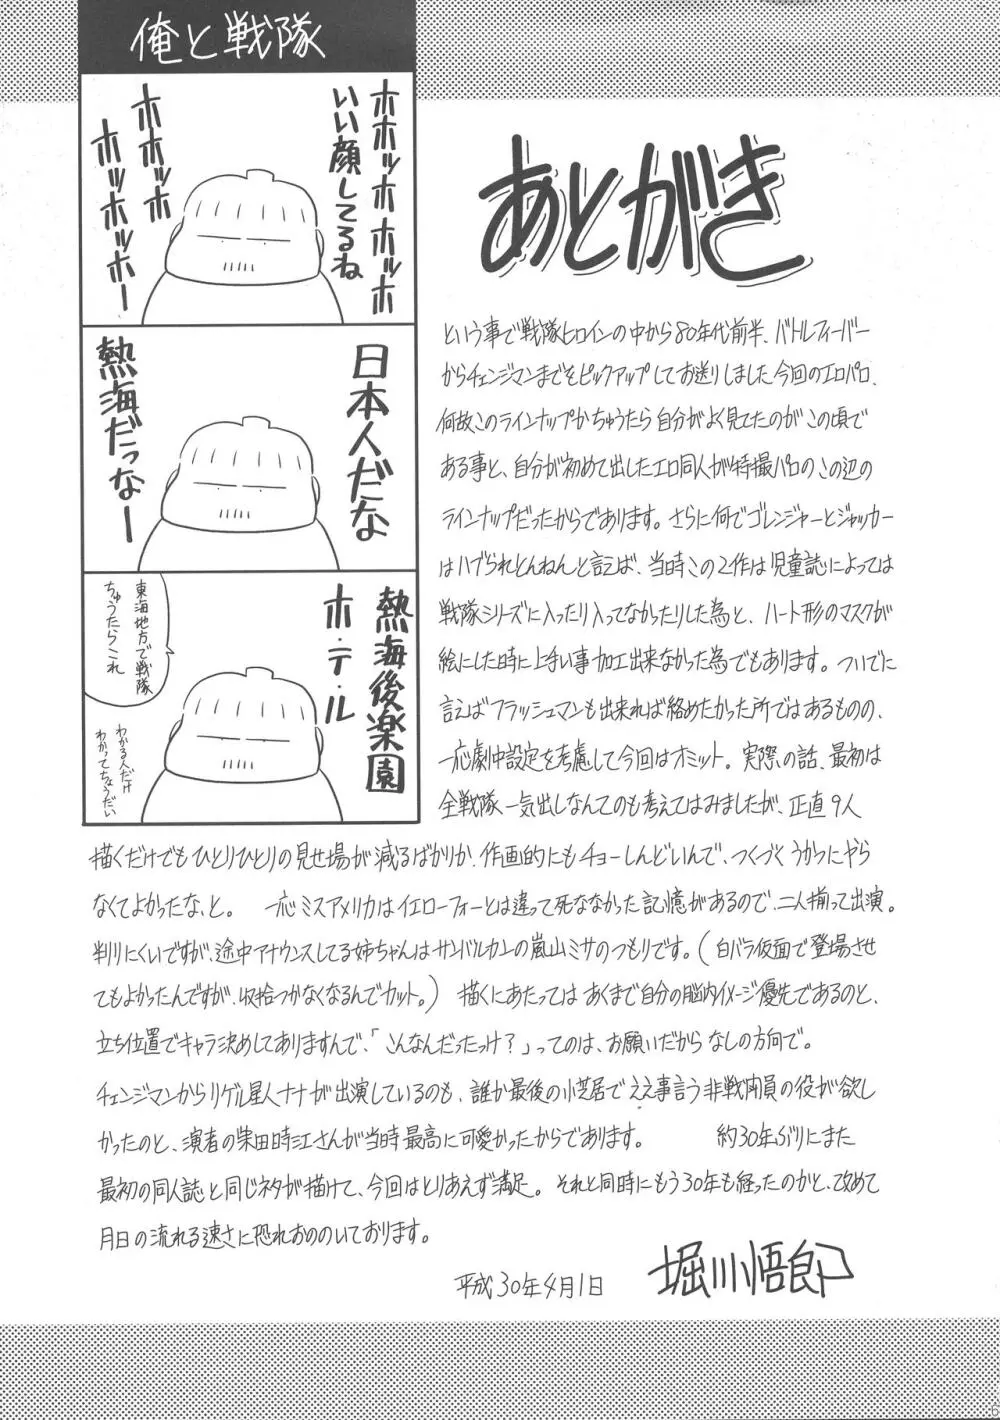 俺と戦隊
ホホッホホッホ
いい顔してるね
ホホッホ
ホッホッホー
日本人だな
熱海だっなー
熱海後楽園
ホ・テ・ル
東海地方で戦隊
ちゅうたらこれ
わかる人だけ
わかってちょうだい
あとがき
という事で戦隊ヒロインの中から80年代前半、バトルフィーバー
からチェンジマンまでをピックアップしてお送りしました今回のエロパロ、
何故このラインナップかちゅうたら自分がよく見てたのがこの頃で
ある事と、自分が初めて出したエロ同人が特撮パロのこの辺の
ラインナップだったからであります。さらに何でゴレンジャーとジャッカー
はハブられとんねんと言えば、当時この2作は児童誌によっては
戦隊シリーズに入ったり入ってなかったりした為と、ハート形のマスクが
絵にした時に上手い事加工出来なかった為でもあります。ついでに
言えばフラッシュマンも出来れば絡めたかった所ではあるものの、
一応劇中設定を考慮して今回はオミット。実際の話、最初は
全戦隊一気出しなんてのも考えてはみましたが、正直9人
描くだけでもひとりひとりの見せ場が減るばかりか、作画的にもチョーしんどいんで、つくづくうかつにやら
なくてよかったな、と。 一応ミスアメリカはイエローフォーとは違って死ななかった記憶があるので、二人揃って出演。
判りにくいですが、途中アナウンスしてる姉ちゃんはサンバルカンの嵐山ミサのつもりです。(白バラ仮面で登場させ
てもよかったんですが、収拾つかなくなるんでカット。) 描くにあたってはあくまで自分の脳内イメージ優先であるのと、
立ち位置でキャラ決めしてありますんで、「こんなんだったっけ?」ってのは、お願いだからなしの方向で。
チェンジマンからリゲル星人ナナが出演しているのも、誰か最後の小芝居でええ事言う非戦闘員の役が欲し
かったのと、演者の柴田時江さんが当時最高に可愛かったからであります。 約30年ぶりにまた
最初の同人誌と同じネタが描けて、今回はとりあえず満足。それと同時にもう30年も経ったのかと、改めて
月日の流れる速さに恐れおののいております。
平成30年4月1日 堀川悟郎